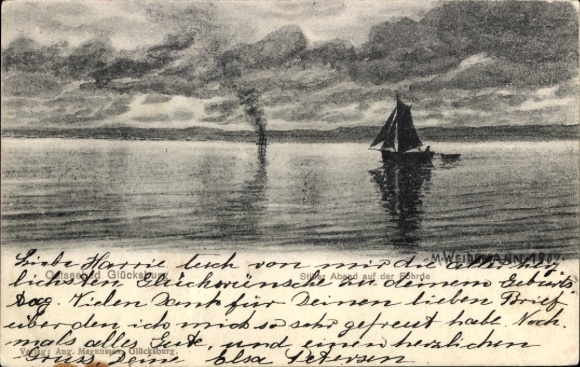 M. WEIDEMANN 1902
Ostseebad Glücksburg
Stiller Abend auf der Föhrde
Liebe Harrie Auch von mir die allerherz
lichsten Glückwünsche zu deinem Geburts
tag. Vielen Dank für Deinen lieben Brief
über den ich mich so sehr gefreut habe. Noch
mals alles Gute, und einen herzlichen
Gruss Deine Elsa Petersen
Verlag: Aug. Magnussen, Glücksburg.